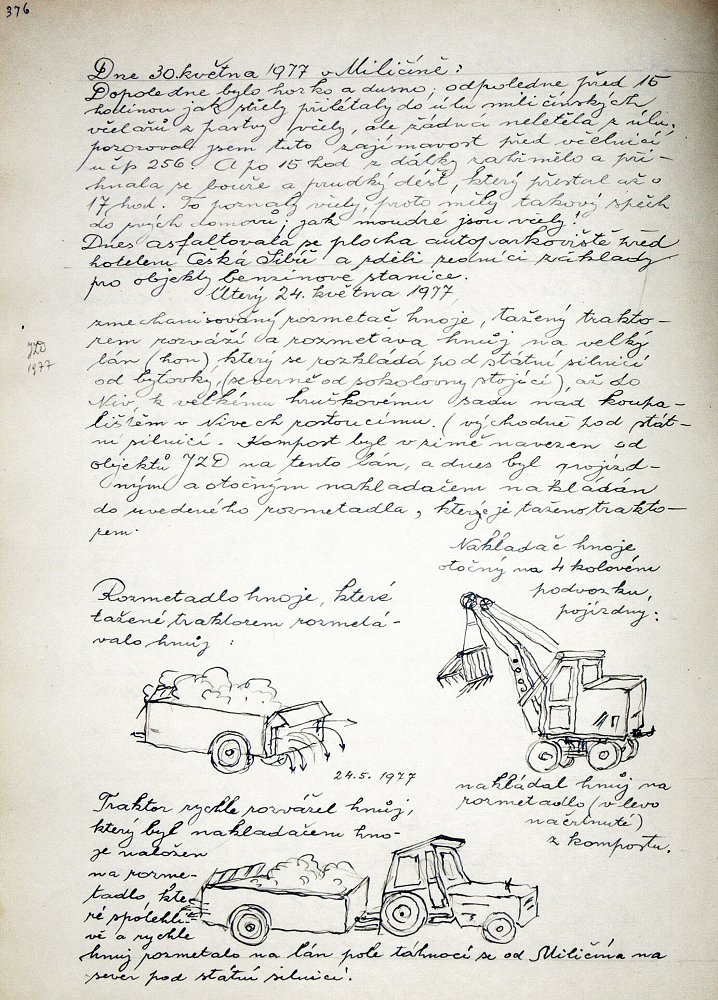 376
Dne 30. května 1977 v Miličíně:
Dopoledne bylo horko a dusno, odpoledne před 15
hodinou jak střely přilétaly do úlu miličínských
včelařů z pastvy včely, ale žádná neletěla z úlu,
pozoroval jsem tuto zajímavost před včelnicí
u čp 256. A po 15 hod z dálky zahřmělo a při-
hnala se bouře a prudký déšť, který přestal až o
17 hod. To poznaly včely, proto měly takový spěch
do svých domovů, jak moudré jsou včely!
Dnes asfaltovala se plocha autoparkoviště před
hotelem Česká Sibiř a zdéli zedníci základy
pro objekty benzinové stanice.
Úterý 24. května 1977
zmechanisovaný rozmetač hnoje, tažený trakto-
rem rozváží a rozmetává hnůj na velký
lán (hon), který se rozkládá pod státní silnicí
od bytovky, (severně od sokolovny stojící), až do
Niv, k velkému hruškovému sadu nad koupa-
lištěm v Nivech rostoucímu. (východně pod stát-
ní silnicí. Kompost byl v zimě navezen od
objektů JZD na tento lán, a dnes byl pojízd-
ným a otočným nakladačem nakládán
do uvedeného rozmetadla, které je taženo trakto-
rem.
JZD
1977
Nakladač hnoje
otočný na 4 kolovém
podvozku,
pojízdný:
Rozmetadlo hnoje, které
tažené traktorem rozmetá-
valo hnůj:
24.5. 1977
nakládal hnůj na
rozmetadlo (v levo
načrtnuté)
z kompostu.
Traktor rychle rozvážel hnůj,
který byl nakladačem hno-
je naložen
na rozme-
tadlo, kte-
ré spolehli-
vě a rychle
hnůj rozmetalo na lán pole táhnoucí se od Miličína na
sever pod státní silnicí.